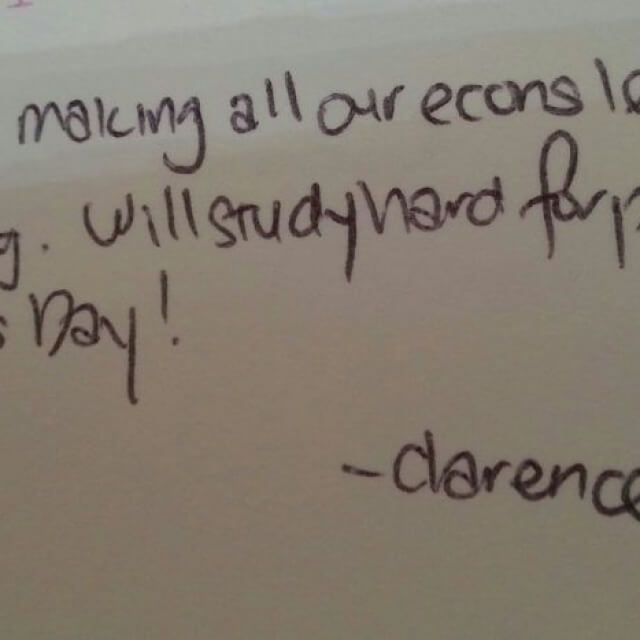 making all our econs
. Will study hard for
Day!
-Clarence